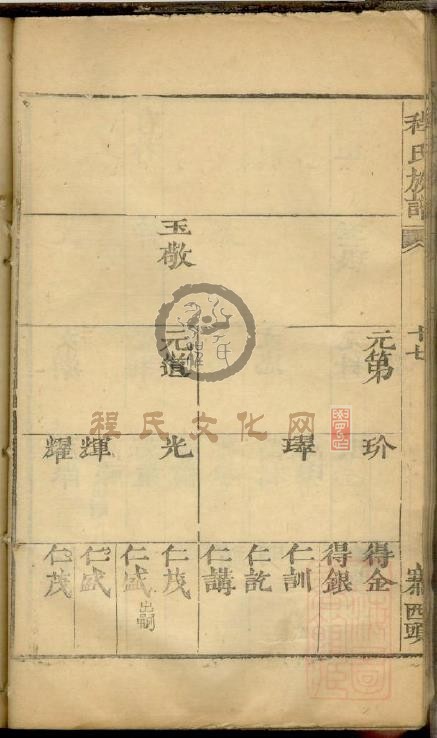 程氏族譜
十七
寨西頭
玉敬
元第
元道
玠
璍
光
輝
耀
得金
得銀
仁訓
仁訖
仁講
仁茂
仁盛
出嗣
仁盛
仁茂
程氏文化网